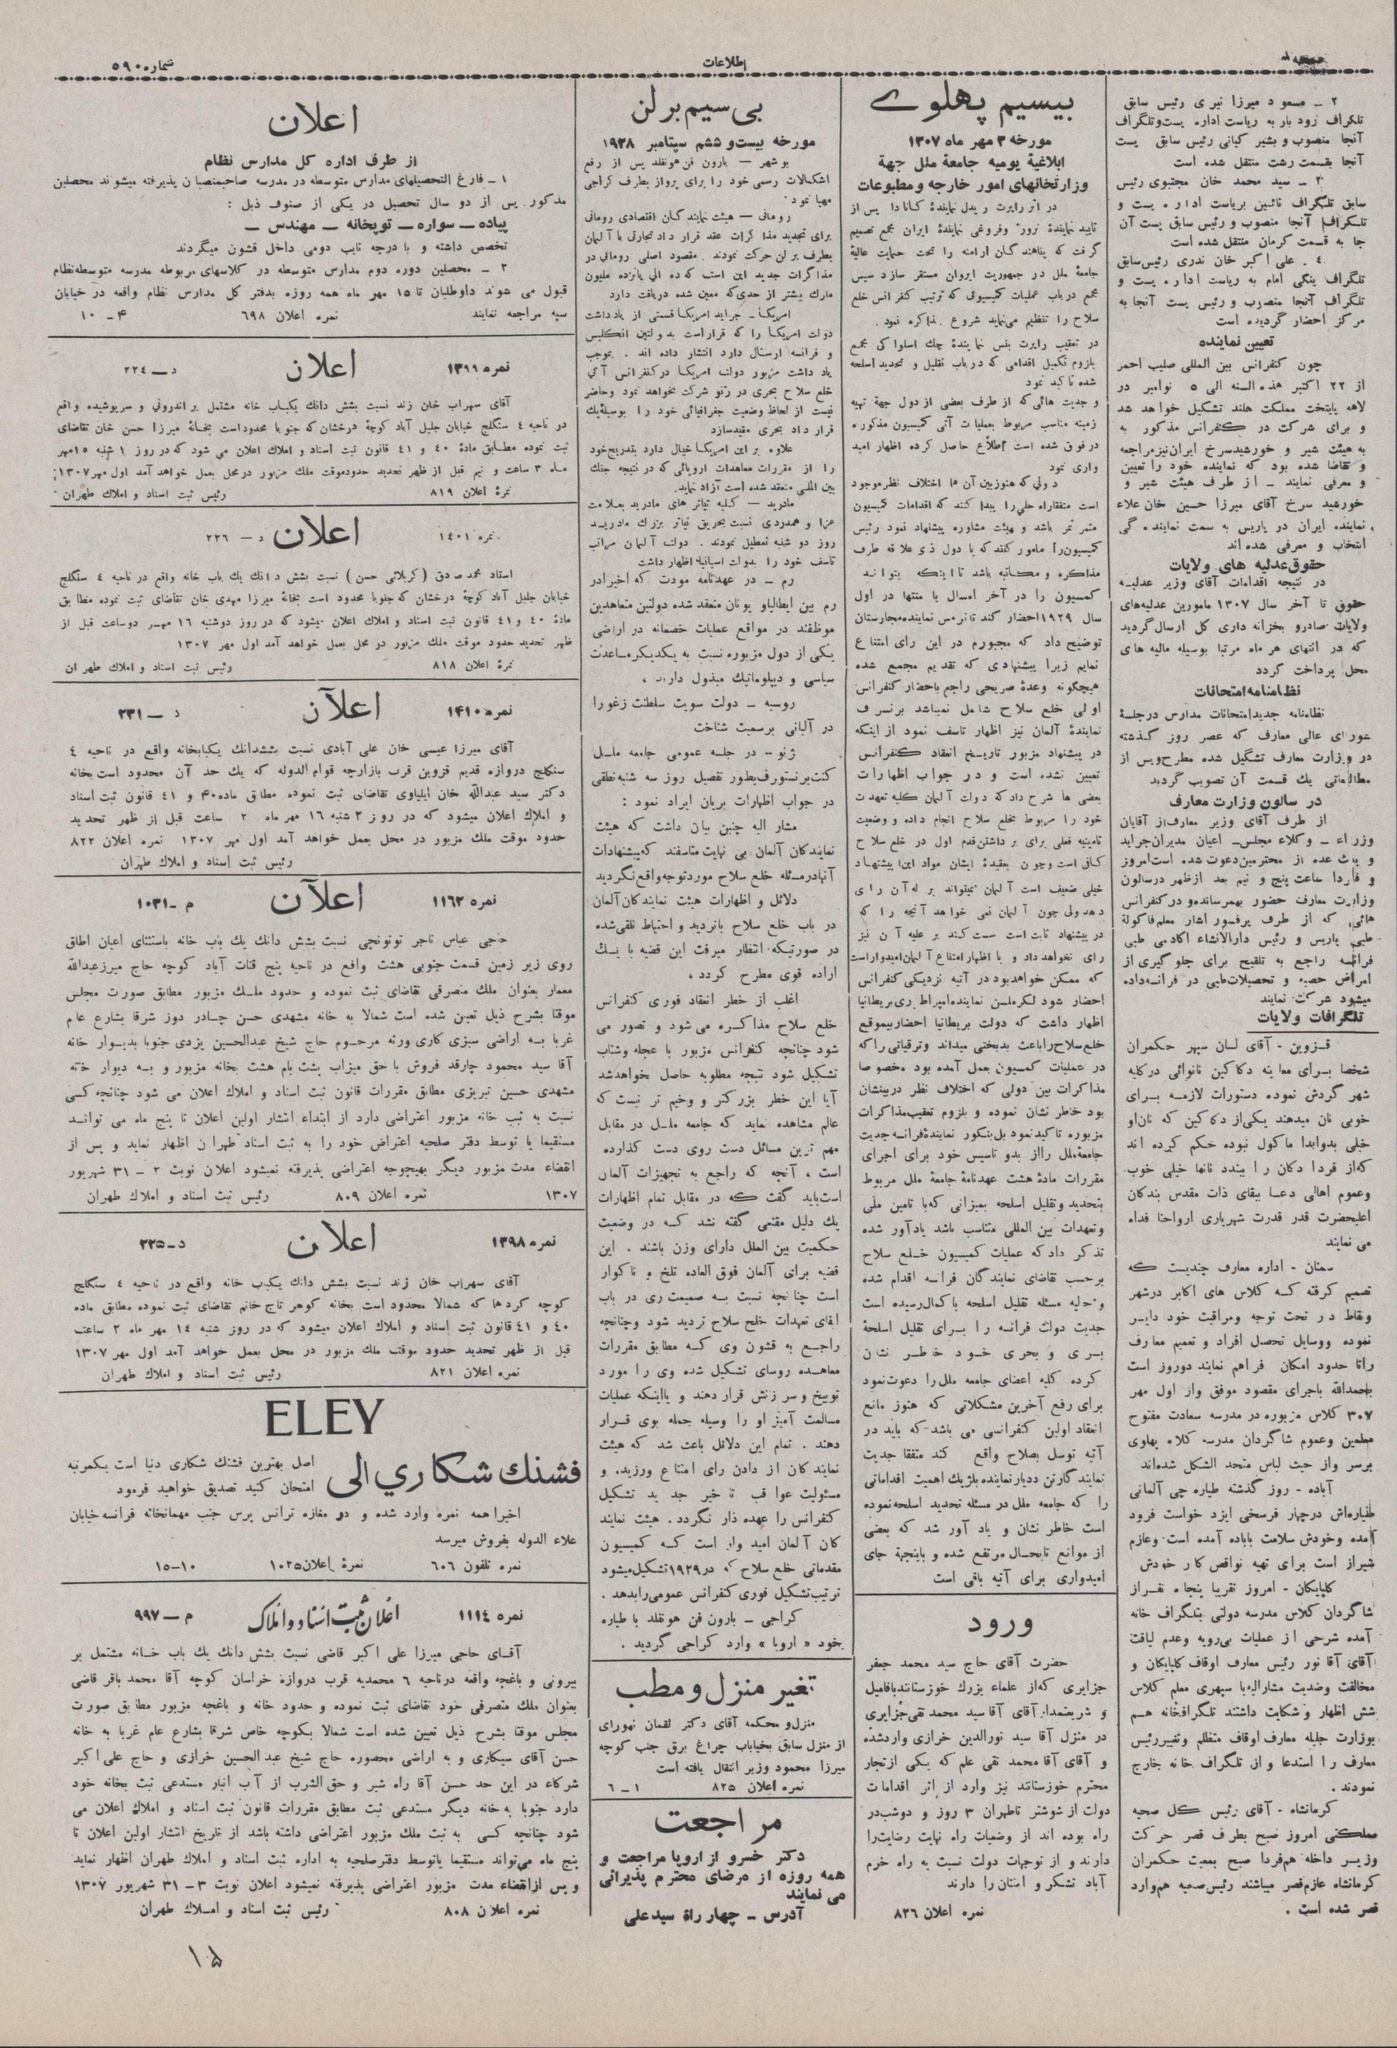 شماره ۵۹۰
اطلاعات
۲ ـ مسعود میرزا نیری رئیس سابق
تلگراف رودبار به ریاست اداره پست و تلگراف
آنجا منصوب و بشیر کیانی رئیس سابق پست
آنجا بقسمت رشت منتقل شده است
۳ ـ سید محمد خان مجتبوی رئیس
سابق تلگراف نائین بریاست اداره پست و
تلگراف آنجا منصوب و رئیس سابق پست آن
جا به قسمت کرمان منتقل شده است
٤ ـ علی اکبر خان ندری رئیس سابق
تلگراف ینگی امام به ریاست اداره پست و
تلگراف آنجا منصوب و رئیس پست آنجا به
مرکز احضار گردیده است
تعیین نماینده
چون کنفرانس بین المللی صلیب احمر
از ۲۲ اکتبر هذه السنه الی ۵ نوامبر در
لاهه پایتخت مملکت هلند تشکیل خواهد شد
و برای شرکت در کنفرانس مذکور به
هیئت شیر و خورشید سرخ ایران نیز مراجعه
و تقاضا شده بود که نماینده خود را تعیین
و معرفی نمایند ـ از طرف هیئت شیر و
خورشید سرخ آقای میرزا حسین خان علاء
نماینده ایران در پاریس به سمت نمایندگی
انتخاب و معرفی شده اند
حقوق عدلیه های ولایات
در نتیجه اقدامات آقای وزیر عدلیه
حقوق تا آخر سال ۱۳۰۷ مامورین عدلیه‌های
ولایات صادر و بخزانه داری کل ارسال گردید
که در انتهای هر ماه مرتبا بوسیله مالیه های
محل پرداخت گردد
نظامنامه امتحانات
نظامنامه جدید امتحانات مدارس در جلسهٔ
شورای عالی معارف که عصر روز گذشته
در وزارت معارف تشکیل شده مطرح و پس از
مطالعاتی یک قسمت آن تصویب گردید
در سالون وزارت معارف
از طرف آقای وزیر معارف از آقایان
وزراء ـ وکلاء مجلس ـ اعیان مدیران جراید
و یک عده از محترمین دعوت شده است امروز
و فردا ساعت پنج و نیم بعد از ظهر در سالون
وزارت معارف حضور بهمرسانده و در کنفرانس
هائی که از طرف پرفسور معلم فاکولته
طبی پاریس و رئیس دارالانشاء اکادمی طبی
فرانسه راجع به تلقیح برای جلوگیری از
امراض حصبه و تحصیلات طبی در فرانسه داده
میشود شرکت نمایند
تلگرافات ولایات
قزوین ـ آقای لسان سپهر حکمران
شخصا برای معاینه دکاکین نانوائی در کلیه
شهر گردش نموده دستورات لازمه برای
خوبی نان میدهند یکی از دکاکین که نان او
خیلی بد و ابدا ماکول نبوده حکم کرده اند
که از فردا دکان را ببندد نانها خیلی خوب
وعموم اهالی دعا ببقای ذات مقدس بندگان
اعلیحضرت قدر قدرت شهریاری ارواحنا فداه
می نمایند
سمنان ـ اداره معارف چندیست که
تصمیم گرفته که کلاس های اکابر در شهر
ونقاط در تحت توجه ومراقبت خود دایر
نموده ووسایل تحصیل افراد و تعمیم معارف
را تا حدود امکان فراهم نماید دو روز است
بحمدالله باجرای مقصود موفق واز اول مهر
۳۰۷ کلاس مزبوره در مدرسه سعادت مفتوح
معلمین وعموم شاگردان مدرسه کلاه پهلوی
برسر واز حیث لباس متحد الشکل شده‌اند
آباده ـ روز گذشته طیاره چی آلمانی
طیاره‌اش در چهار فرسخی ایزد خواست فرود
آمده وخودش سلامت باباده آمده است وعازم
شیراز است برای تهیه نواقص کار خودش
گلپایگان ـ امروز تقریبا پنجاه نفر از
شاگردان کلاس مدرسه دولتی بتلگراف خانه
آمده شرحی از عملیات بی‌رویه وعدم لیاقت
آقای آقا نور رئیس معارف اوقاف گلپایگان و
مخالفت وضدیت مشارالیه با سپهری معلم کلاس
شش اظهار و شکایت داشتند تلگرافخانه هم
بوزارت جلیله معارف اوقاف متظلم وتغییر رئیس
معارف را استدعا و از تلگراف خانه خارج
نمودند .
کرمانشاه ـ آقای رئیس کل صحیه
مملکتی امروز صبح بطرف قصر حرکت
وزیر داخله هم فردا صبح بمعیت حکمران
کرمانشاه عازم قصر میباشند رئیس صحیه هم وارد
قصر شده است .
بیسیم پهلوی
مورخه ۳ مهر ماه ۱۳۰۷
ابلاغیهٔ یومیه جامعهٔ ملل جهة
وزارتخانهای امور خارجه و مطبوعات
در اثر راپرت ریدل نمایندهٔ کانادا پس از
تایید نمایندهٔ نروژ وفروغی نمایندهٔ ایران مجمع تصمیم
گرفت که پناهندگان ارامنه را تحت حمایت عالیهٔ
جامعهٔ ملل در جمهوریت ایروان مستقر سازد سپس
مجمع در باب عملیات کمیسیونی که ترتیب کنفرانس خلع
سلاح را تنظیم می‌نماید شروع بمذاکره نمود .
در تعقیب راپرت بنس نمایندهٔ چک اسلواکی مجمع
بلزوم تکمیل اقدامی که در باب تقلیل و تحدید اسلحه
شده تاکید نمود
و جدیت هائی که از طرف بعضی از دول جهة تهیه
زمینه مناسب مربوط بعملیات آتی کمیسیون مذکوره
در فوق شده است اطلاع حاصل کرده اظهار امید
واری نمود
دولی که هنوز بین آن ها اختلاف نظر موجود
است متفقا راه حلی را پیدا کنند که اقدامات کمیسیون
مثمر ثمر باشد و هیئت مشاوره پیشنهاد نمود رئیس
کمیسیون را مامور کنند که با دول ذی علاقه طرف
مذاکره و مکاتبه باشد تا اینکه بتواند
کمسیون را در آخر امسال یا منتها در اول
سال ۱۹۲۹ احضار کند تانرس نماینده مجارستان
توضیح داد که مجبورم در این رای امتناع
نمایم زیرا پیشنهادی که تقدیم مجمع شده
هیچگونه وعدهٔ صریحی راجع باحضار کنفرانس
اولی خلع سلاح شامل نمیباشد برنسرف
نمایندهٔ آلمان نیز اظهار تاسف نمود از اینکه
در پیشنهاد مزبور تاریخ انعقاد کنفرانس
تعیین نشده است و در جواب اظهارات
بعضی ها شرح داد که دولت آلمان کلیه تعهدات
خود را مربوط بخلع سلاح انجام داده و وضعیت
تامینیه فعلی برای برداشتن قدم اول در خلع سلاح
کافی است وچون بعقیدهٔ ایشان مواد این پیشنهاد
خیلی ضعیف است آلمان نمیتواند برله آن رای
دهد ولی چون آلمان نمی خواهد آنچه را که
در پیشنهاد ثابت است سست کند بر علیه آن نیز
رای نخواهد داد و با اظهار امتناع آلمان امیدوار است
که ممکن خواهد بود در آتیه نزدیکی کنفرانس
احضار شود نماینده امپراطوری بریطانیا
اظهار داشت که دولت بریطانیا احضار بیموقع
خلع سلاح را باعث بدبختی میداند و ترقیاتی را که
در عملیات کمسیون بعمل آمده بود مخصوصا
مذاکرات بین دولی که اختلاف نظر در بینشان
بود خاطر نشان نموده و بلزوم تعقیب مذاکرات
مزبوره تاکید نمود پل بنکور نمایندهٔ فرانسه جدیت
جامعهٔ ملل را از بدو تاسیس خود برای اجرای
مقررات مادهٔ هشت عهدنامهٔ جامعهٔ ملل مربوط
بتحدید و تقلیل اسلحه بمیزانی که با تامین ملی
و تعهدات بین المللی متناسب باشد یادآور شده
تذکر داد که عملیات کمیسیون خلع سلاح
برحسب تقاضای نمایندگان فرانسه اقدام شده
و حلیه مسئله تقلیل اسلحه باکمال رسیده است
جدیت دولت فرانسه را برای تقلیل اسلحهٔ
بری و بحری خود خاطر نشان
کرده کلیه اعضای جامعه ملل را دعوت نمود
برای رفع آخرین مشکلاتی که هنوز مانع
انعقاد اولین کنفرانسی می باشد که باید در
آتیه توسل بصلاح واقع کند متفقا جدیت
نمایند نماینده بلژیک اهمیت اقداماتی
را که جامعه ملل در مسئله تحدید اسلحه نموده
است خاطر نشان و یاد آور شد که بعضی
از موانع تابحال مرتفع شده و باینجهة جای
امیدواری برای آتیه باقی است
ورود
حضرت آقای حاج سید محمد جعفر
جزایری که از علماء بزرگ خوزستانند با فامیل
و شریعتمدار آقای آقا سید محمد تقی جزایری
در منزل آقا سید نورالدین خرازی وارد شده
و آقای آقا محمد تقی علم که یکی از تجار
محترم خوزستانند نیز وارد از اثر اقدامات
دولت از شوشتر تا طهران ۳ روز و دوشب در
راه بوده اند از وضعیات راه نهایت رضایت را
دارند و از توجهات دولت نسبت به راه خرم
آباد تشکر و امتنان را دارند
نمره اعلان ۸۲۶
بی سیم برلن
مورخه بیست و ششم سپتامبر ۱۹۲۸
بوشهر ـ بارون فن هونفلد پس از رفع
اشکالات رسمی خود را برای پرواز بطرف کراچی
مهیا نمود
رومانی ـ هیئت نمایندگان اقتصادی رومانی
برای تجدید مذاکرات عقد قرارداد تجارتی با آلمان
بطرف برلن حرکت نمودند . مقصود اصلی رومانی در
مذاکرات جدید این است که ده الی پانزده ملیون
مارک بیشتر از حدی که معین شده دریافت دارد
امریکا ـ جراید امریکا قسمتی از یادداشت
دولت امریکا را که قرار است بدولتین انگلیس
و فرانسه ارسال دارد انتشار داده اند . بموجب
یاد داشت مزبور دولت امریکا در کنفرانس آتی
خلع سلاح بحری در ژنو شرکت نخواهد نمود وحاضر
نیست از لحاظ وضعیت جغرافیائی خود را بوسیله یک
قرار داد بحری مقید سازد
علاوه بر این امریکا خیال دارد بتدریج خود
را از مقررات معاهدات اروپائی که در نتیجه جنگ
بین المللی منعقد شده است آزاد نماید.
مادرید ـ کلیه تیاتر های مادرید بعلامت
عزا و همدردی نسبت بحریق تیاتر بزرگ مادرید
روز دو شنبه تعطیل نمودند . دولت آلمان مراتب
تاسف خود را بدولت اسپانیا اظهار داشت
رم ـ در عهدنامه مودت که اخیرا در
رم بین ایطالیا و یونان منعقد شده دولتین متعاهدین
موظفند در مواقع عملیات خصمانه در اراضی
یکی از دول مزبوره نسبت به یکدیگر مساعدت
سیاسی و دیپلوماتیک مبذول دارند .
روسیه ـ دولت سویت سلطنت زغو را
در آلبانی برسمیت شناخت
ژنو ـ در جلسه عمومی جامعه ملل
کنت برنستورف بطور تفصیل روز سه شنبه نطقی
در جواب اظهارات بریان ایراد نمود :
مشار الیه چنین بیان داشت که هیئت
نمایندگان آلمان بی نهایت متاسفند که پیشنهادات
آنها در مسئله خلع سلاح مورد توجه واقع نگردید
دلائل و اظهارات هیئت نمایندگان آلمان
در باب خلع سلاح با تردید و احتیاط تلقی شده
در صورتیکه انتظار میرفت این قضیه با یک
اراده قوی مطرح گردد .
اغلب از خطر انعقاد فوری کنفرانس
خلع سلاح مذاکره می شود و تصور می
شود چنانچه کنفرانس مزبور با عجله وشتاب
تشکیل شود نتیجه مطلوبه حاصل خواهد شد
آیا این خطر بزرگتر و وخیم تر نیست که
عالم مشاهده نماید که جامعه ملل در مقابل
مهم ترین مسائل دست روی دست گذارده
است . آنچه که راجع به تجهیزات آلمان
است باید گفت که در مقابل تمام اظهارات
یک دلیل مقنعی گفته نشد که در وضعیت
حکمیت بین الملل دارای وزن باشند . این
قضیه برای آلمان فوق العاده تلخ و ناگوار
است چنانچه نسبت به صمیمت ری در باب
ایفای تعهدات خلع سلاح تردید شود وچنانچه
راجع به قشون وی که مطابق مقررات
معاهده روسای تشکیل شده وی را مورد
توبیخ و سر زنش قرار دهند و بااینکه عملیات
مسالمت آمیز او را وسیله حمله بوی قرار
دهند . تمام این دلائل باعث شد که هیئت
نمایندگان از دادن رای امتناع ورزید. و
مسئولیت عواقب تاخیر جدید تشکیل
کنفرانس را عهده دار نگردد . هیئت نمایند
گان آلمان امید وار است که کمیسیون
مقدماتی خلع سلاح که در ۱۹۲۹ تشکیل میشود
ترتیب تشکیل فوری کنفرانس عمومی را بدهد .
کراچی ـ بارون فن هونفلد با طیاره
خود « اروپا » وارد کراچی گردید .
تغییر منزل و مطب
منزل و محکمه آقای دکتر لقمان نهورای
از منزل سابق بخیابان چراغ برق جنب کوچه
میرزا محمود وزیر انتقال یافته است
نمره اعلان ۸۲۵ ۱ ـ ۶
مراجعت
دکتر خسرو از اروپا مراجعت و
همه روزه از مرضای محترم پذیرائی
می نمایند
آدرس ـ چهار راه سید علی
اعلان
از طرف اداره کل مدارس نظام
۱ ـ فارغ التحصیلهای مدارس متوسطه در مدرسه صاحبمنصبان پذیرفته میشوند محصلین
مذکور پس از دو سال تحصیل در یکی از صنوف ذیل :
پیاده ـ سواره ـ توپخانه ـ مهندس ـ
تخصص داشته و با درجه نایب دومی داخل قشون میگردند
۲ ـ محصلین دوره دوم مدارس متوسطه در کلاسهای مربوطه مدرسه متوسطه نظام
قبول می شوند داوطلبان تا ۱۵ مهر ماه همه روزه بدفتر کل مدارس نظام واقعه در خیابان
سپه مراجعه نمایند نمره اعلان ۶۹۸ ۴ ـ ۱۰
نمره ۱۳۹۹ اعلان د ـ ۲۲۴
آقای سهراب خان زند نسبت بشش دانگ یکباب خانه مشتمل بر اندرونی و سرپوشیده واقع
در ناحیه ٤ سنگلج خیابان جلیل آباد کوچهٔ درخشان که جنوبا محدود است بخانهٔ میرزا حسن خان تقاضای
ثبت نموده مطابق مادهٔ ۴۰ و ۴۱ قانون ثبت اسناد و املاک اعلان می شود که در روز ۱ شنبه ۱۵ مهر
ماه ۳ ساعت و نیم قبل از ظهر تحدید حدود موقت ملک مزبور در محل بعمل خواهد آمد اول مهر ۱۳۰۷
نمرهٔ اعلان ۸۱۹ رئیس ثبت اسناد و املاک طهران
نمره ۱۴۰۱ اعلان د ـ ۲۲۶
استاد محمد صادق (کربلائی حسن) نسبت بشش دانگ یک باب خانه واقع در ناحیه ٤ سنگلج
خیابان جلیل آباد کوچهٔ درخشان که جنوبا محدود است بخانهٔ میرزا مهدی خان تقاضای ثبت نموده مطابق
مادهٔ ۴۰ و ۴۱ قانون ثبت اسناد و املاک اعلان میشود که در روز دوشنبه ۱۶ مهر دو ساعت قبل از
ظهر تحدید حدود موقت ملک مزبور در محل بعمل خواهد آمد اول مهر ۱۳۰۷
نمرهٔ اعلان ۸۱۸ رئیس ثبت اسناد و املاک طهران
نمره ۱۴۱۰ اعلان د ـ ۲۳۱
آقای میرزا عیسی خان علی آبادی نسبت بششدانگ یکبابخانه واقع در ناحیه ٤
سنگلج دروازه قدیم قزوین قرب بازارچه قوام الدوله که یک حد آن محدود است بخانه
دکتر سید عبدالله خان ایلیاوی تقاضای ثبت نموده مطابق ماده ۴۰ و ۴۱ قانون ثبت اسناد
و املاک اعلان میشود که در روز ۲ شنبه ۱۶ مهر ماه ۲ ساعت قبل از ظهر تحدید
حدود موقت ملک مزبور در محل بعمل خواهد آمد اول مهر ۱۳۰۷ نمره اعلان ۸۲۲
رئیس ثبت اسناد و املاک طهران
نمره ۱۱۶۲ اعلان م ـ ۱۰۳۱
حاجی عباس تاجر توتونچی نسبت بشش دانگ یک باب خانه باستثنای اعیان اطاق
روی زیر زمین قسمت جنوبی هشت واقع در ناحیه پنج قنات آباد کوچه حاج میرزعبدالله
معمار بعنوان ملک متصرفی تقاضای ثبت نموده و حدود ملک مزبور مطابق صورت مجلس
موقتا بشرح ذیل تعیین شده است شمالا به خانه مشهدی حسن چادر دوز شرقا بشارع عام
غربا به اراضی سبزی کاری ورثه مرحوم حاج شیخ عبدالحسین یزدی جنوبا بدیوار خانه
آقا سید محمود چارقد فروش با حق میزاب پشت بام هشت بخانه مزبور و به دیوار خانه
مشهدی حسین تبریزی مطابق مقررات قانون ثبت اسناد و املاک اعلان می شود چنانچه کسی
نسبت به ثبت خانه مزبور اعتراضی دارد از ابتداء انتشار اولین اعلان تا پنج ماه می توانند
مستقیما یا توسط دفتر صلحیه اعتراض خود را به ثبت اسناد طهران اظهار نماید و پس از
انقضاء مدت مزبور دیگر بهیچوجه اعتراضی پذیرفته نمیشود اعلان نوبت ۲ ـ ۳۱ شهریور
۱۳۰۷ نمره اعلان ۸۰۹ رئیس ثبت اسناد و املاک طهران
نمره ۱۳۹۸ اعلان د ـ ۲۲۵
آقای سهراب خان زند نسبت بشش دانگ یکباب خانه واقع در ناحیه ٤ سنگلج
کوچه کردها که شمالا محدود است بخانه گوهر تاج خانم تقاضای ثبت نموده مطابق ماده
۴۰ و ۴۱ قانون ثبت اسناد و املاک اعلان میشود که در روز شنبه ۱۴ مهر ماه ۲ ساعت
قبل از ظهر تحدید حدود موقت ملک مزبور در محل بعمل خواهد آمد اول مهر ۱۳۰۷
نمره اعلان ۸۲۱ رئیس ثبت اسناد و املاک طهران
ELEY
فشنگ شکاری الی
اصل بهترین فشنگ شکاری دنیا است یکمرتبه
امتحان کنید تصدیق خواهید فرمود
اخیرا همه نمره وارد شده و در مغازه ترانس پرس جنب مهمانخانه فرانسه خیابان
علاء الدوله بفروش میرسد
نمره تلفون ۶۰۶ نمرهٔ اعلان ۱۰۲۵ ۱۰ـ۱۵
نمره ۱۱۱۴ اعلان ثبت اسناد و املاک م ـ ۹۹۷
آقای حاجی میرزا علی اکبر قاضی نسبت بشش دانگ یک باب خانه مشتمل بر
بیرونی و باغچه واقعه در ناحیه ۶ محمدیه قرب دروازه خراسان کوچه آقا محمد باقر قاضی
بعنوان ملک متصرفی خود تقاضای ثبت نموده و حدود خانه و باغچه مزبور مطابق صورت
مجلس موقتا بشرح ذیل تعیین شده است شمالا بکوچه خاص شرقا بشارع عام غربا به خانه
حسن آقای سیگاری و به اراضی محصوره حاج شیخ عبدالحسین خرازی و حاج علی اکبر
شرکاء در این حد حسن آقا راه شیر و حق الشرب از آب انبار مستدعی ثبت بخانه خود
دارد جنوبا به خانه دیگر مستدعی ثبت مطابق مقررات قانون ثبت اسناد و املاک اعلان می
شود چنانچه کسی به ثبت ملک مزبور اعتراضی داشته باشد از تاریخ انتشار اولین اعلان تا
پنج ماه می‌تواند مستقیما یا توسط دفتر صلحیه به اداره ثبت اسناد و املاک طهران اظهار نماید
و پس از انقضاء مدت مزبور اعتراضی پذیرفته نمیشود اعلان نوبت ۳ ـ ۳۱ شهریور ۱۳۰۷
نمره اعلان ۸۰۸ رئیس ثبت اسناد و املاک طهران
۱۰۵